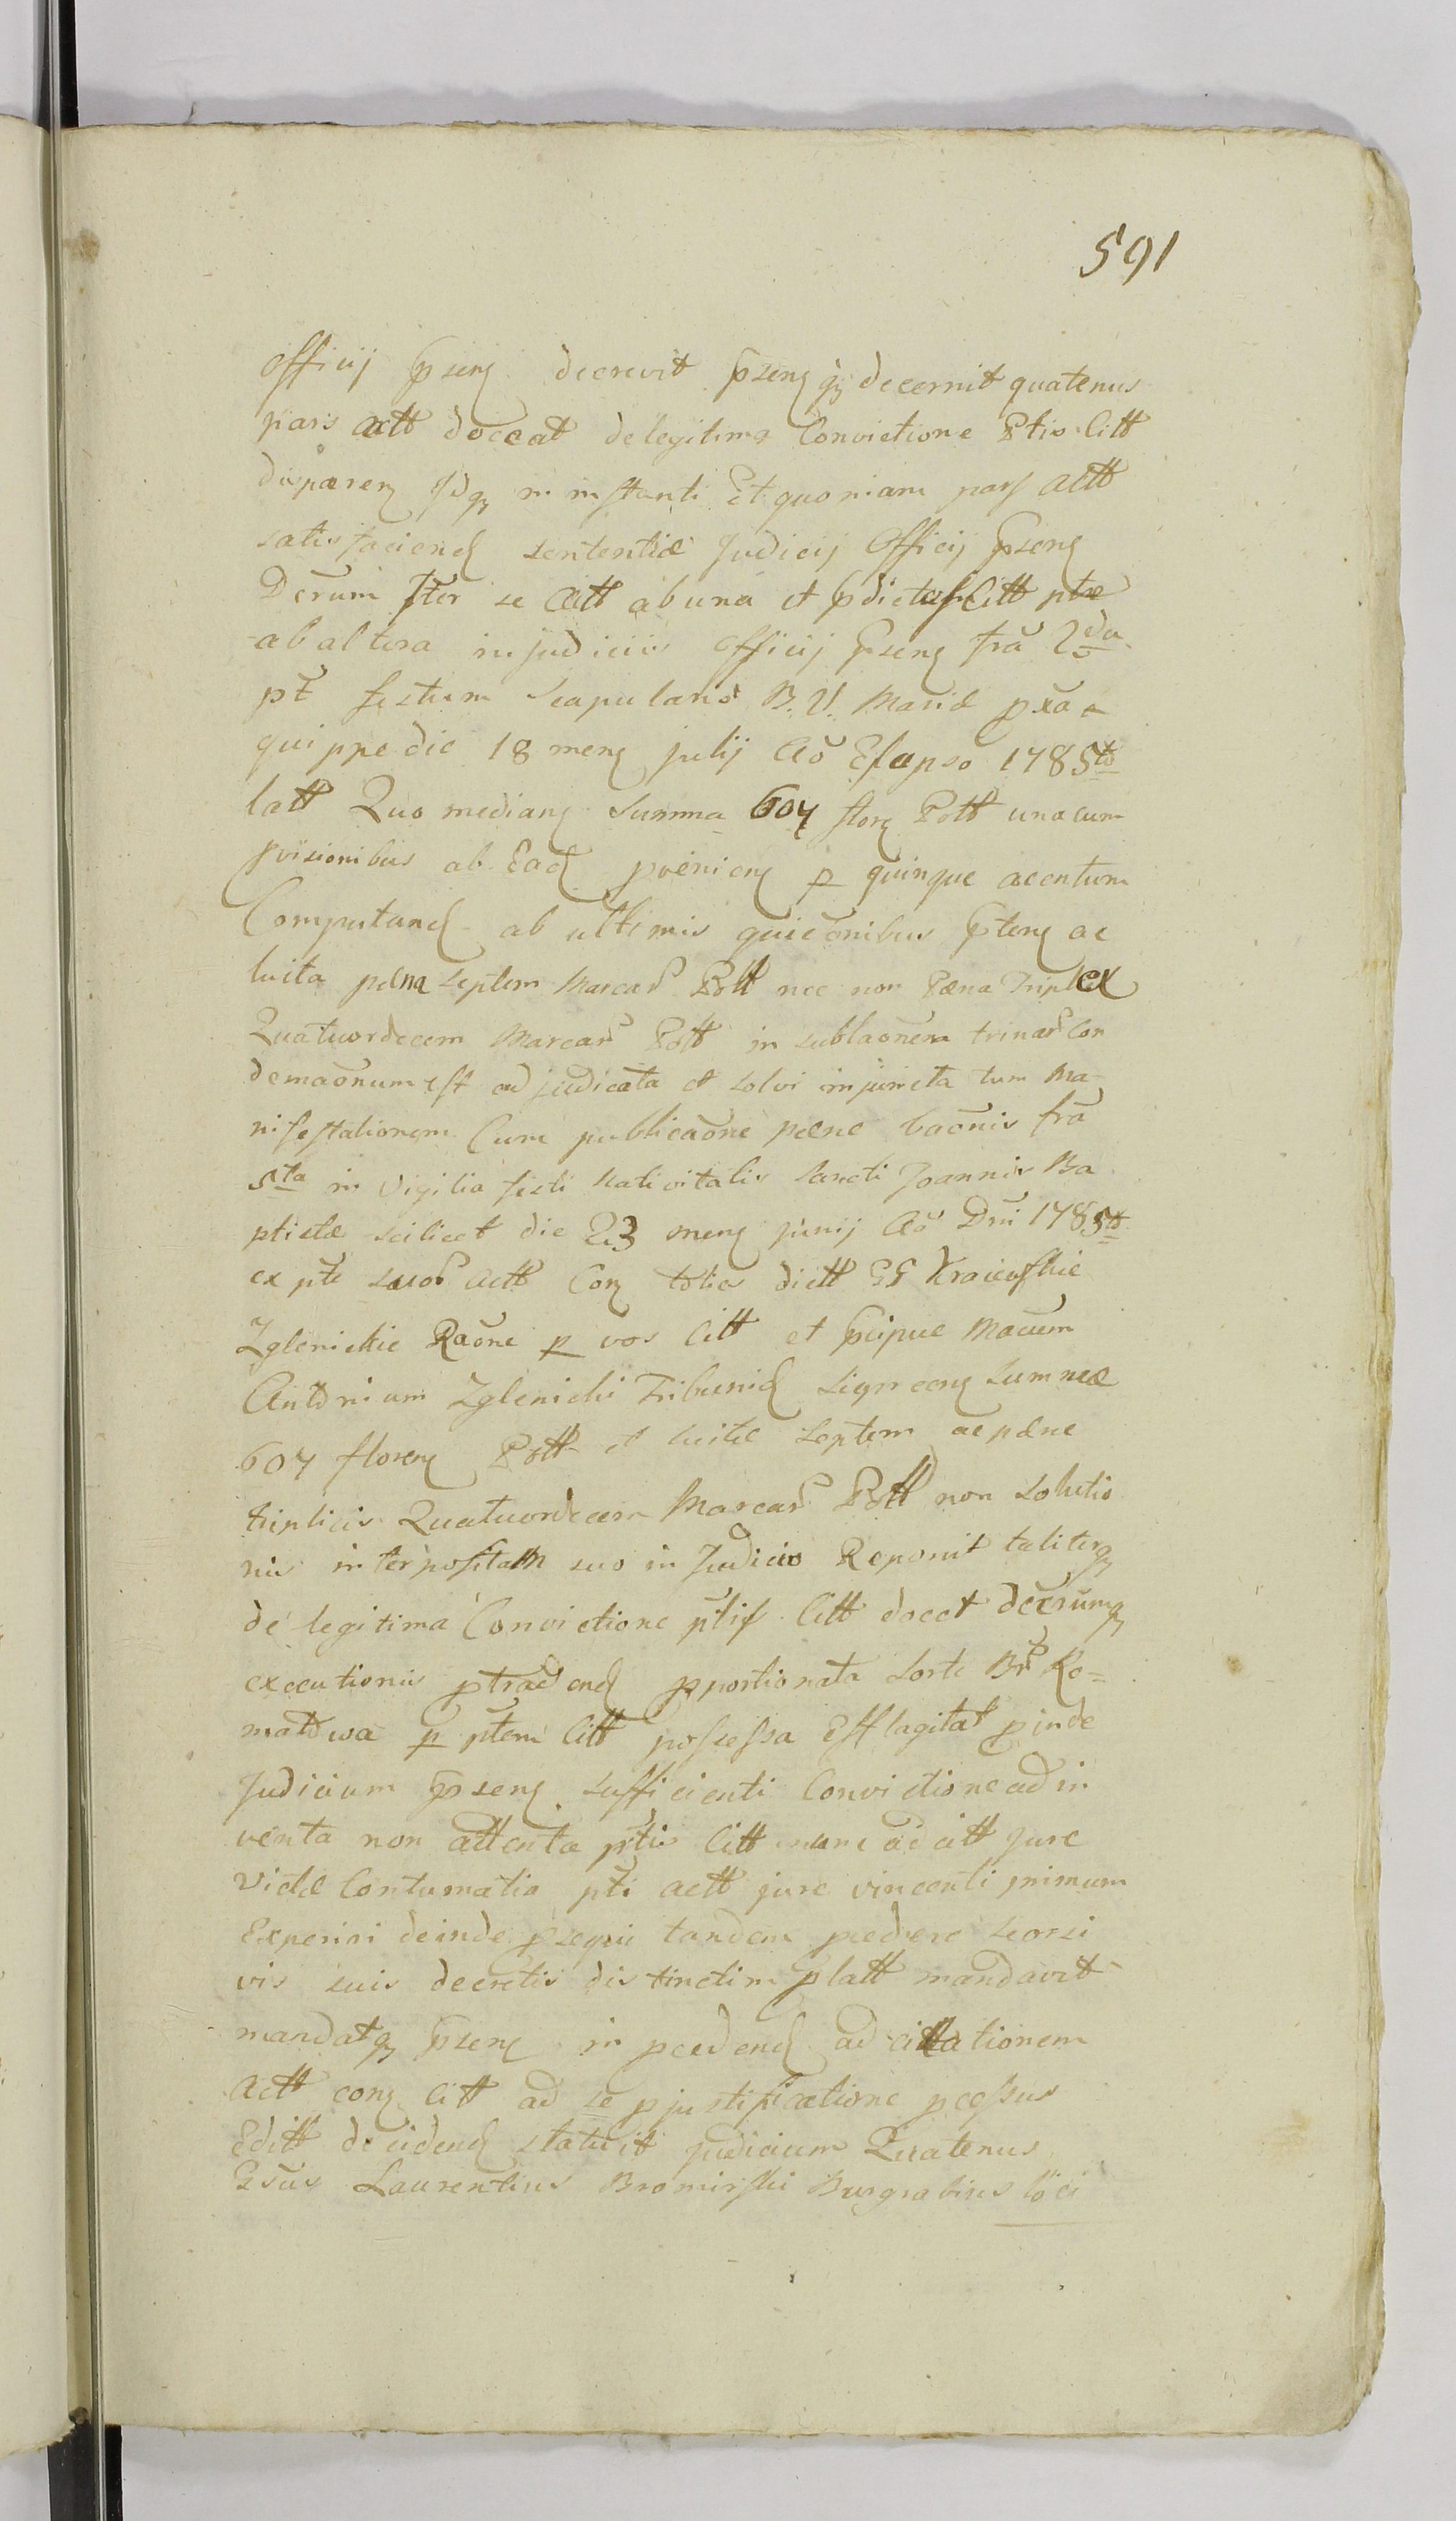 591
Officij pseng decrevit psengqz decernit quatenus
pars actt doceat de legitima Convictione Ptis Citt
disparen Idqz in instanti Et quoniam pars actt
satisfaciend sententiæ Judicij Officij pseng
Decrum Iter se Actt ab una et pdictas Citt ptæ
ab altera in judiciis Officij pseng fra 2da
pt festum Scapularis B. V. Mariæ pxa
quippe die 18 meng julij Ao Elapso 1785to
latt Quo median summa 604 flor Pott unacum
pvisionibus ab Ead pvenien p quinque a centum
Computand ab ultimis quicõnibus pteng ac
luita pæna septem Marcar Pott nec non Pæna Triplex
Quatuordecem Marcar Pott in sublaõnem trinar Con
demaõnum est adjudicata et solvi injuncta tum Ma-
nifestationem Cum publicaõne pæne baõnis fra
5ta in Vigilia festi Nativitatis Sancti Joannis Ba
ptistæ scilicet die 23 meng junij Ao Dni 1785to
ex pte suor actt Con toties dictt GG Kraiewskie
Zglenickie Raõne p vos Citt et pcipue Macum
Antonium Zglenicki Tribunid summæ
604 floren Pott et luitæ septem ac pæne
triplicis Quatuordecem Marcar Pott non Solutio
nis interpositam suo in Judicio Reponit taliterqz
de legitima Convictione ptis Citt docet decrumqz
executionis ptradend pportionata sorte Br Ko=
matowa p ptem Citt possessa Efflagitat pinde
Judicium pseng sufficienti Convictione ad in
venta non attenta ptis Citt nunc ad actt jure
Victæ Contumatia pti actt jure vincenti primum
Experiri deinde psequi tandem pcedere seorsi
vis suis decretis distinctim platt mandavit
mandatqz pseng in pcedend ad citationem
Actt con Citt ad se pjustificatione pcessus
Editt decidend statuit judicium Quatenus
Gsus Laurentius Bromirski Burgrabius loci